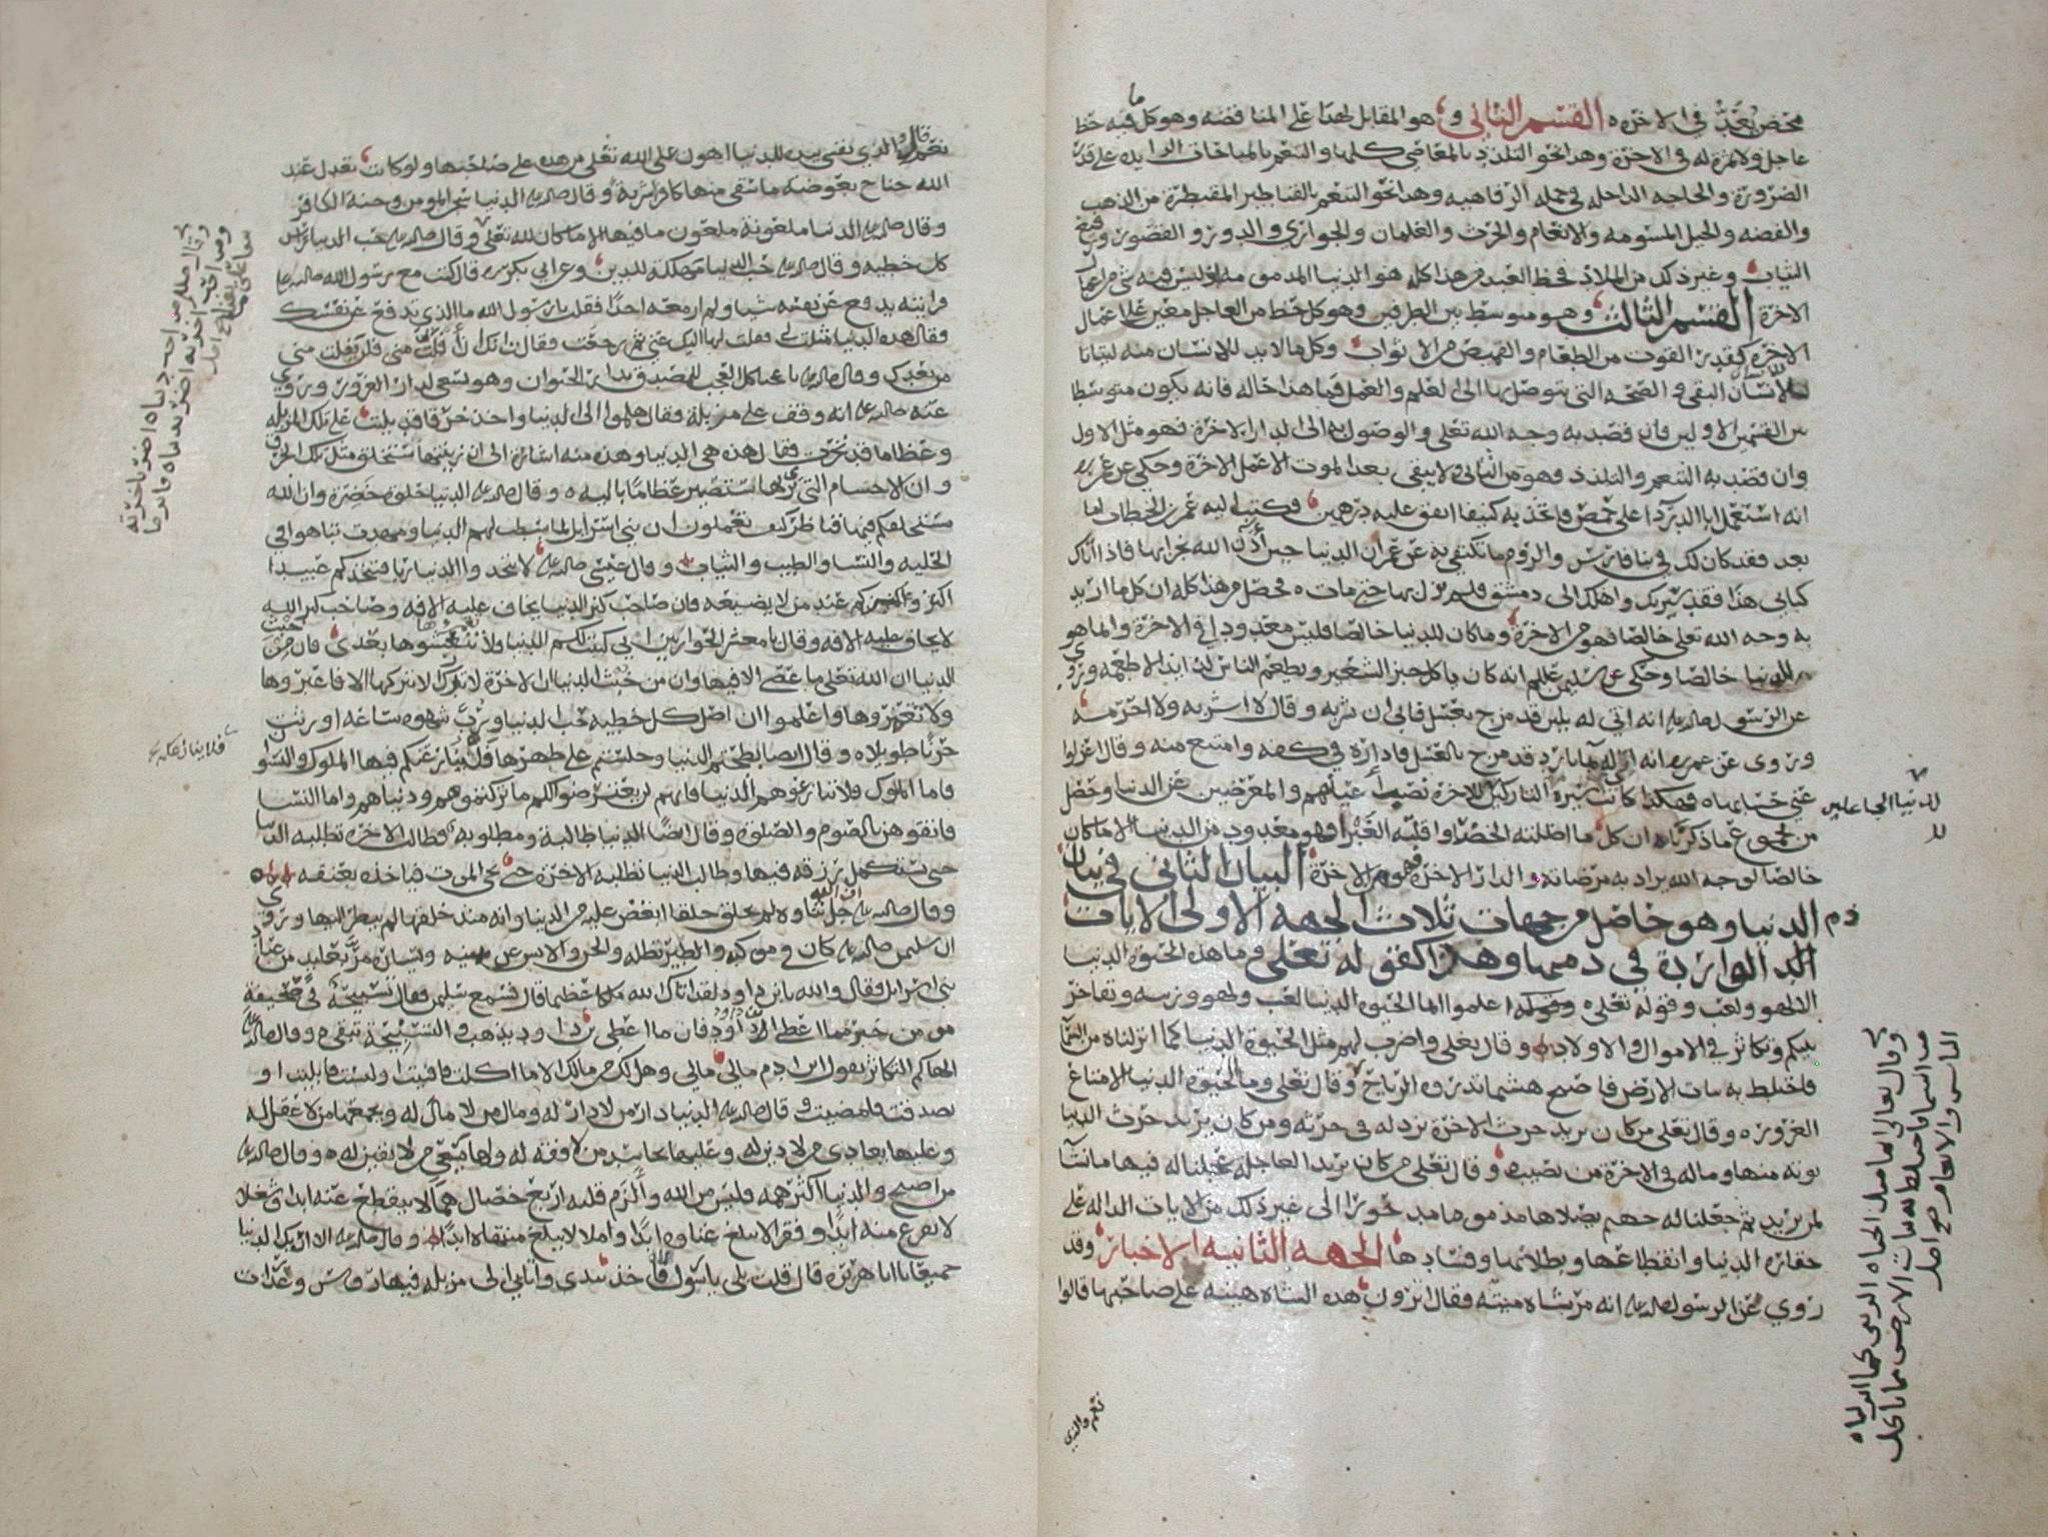 محض يُعَدُّ في الاخره القسم الثاني وهو المقابل لهذا على المناقضه وهو كل ما فيه حظ
عاجل ولا ثمرة له في الاخرة وهذا نحو التلذذ بالمعاصي كلها والتنعم بالمباحات الزايده على قدر
الضرورة والحاجه الداخله في جمله الرفاهيه وهذا نحو التنعم بالقناطير المقنطرة من الذهب
والفضه والخيل المسومه والانعام والحرث والغلمان والجواري والدور والقصور ورفيع
الثياب وغير ذلك من الملاذ فحظ العبد من هذا كله هو الدنيا المذمومه اذ ليس فيه شي من اعمال
الاخرة القسم الثالث وهو متوسط بين الطرفين وهو كل حظ من العاجل معين على اعمال
الاخرة كقدر القوت من الطعام والقميص من الاثواب وكل ما لا بد للانسان منه ليتاتا
للانسان البقى و الصحه التي يتوصل بها الى العلم والعمل فما هذا حاله فانه يكون متوسطا
بين القسمين الاولين فان قصد به وجه الله تعلى والوصول به الى الدار الاخرة فهو مثل الاول
وان قصد به التنعم والتلذذ فهو من الثاني ولا يبقى بعد الموت الا عمل الاخرة وحكي عن عمر
انه استعمل ابا الدرداء على حمص فاتخذ به كنيفا انفق عليه درهمين فكتب اليه عمر بن الخطاب اما
بعد فقد كان لك في بنا فارس والروم ما تكتفي به عن عمران الدنيا حين أذن الله بخرابها فاذا اتاك
كتابي هذا فقد سيرتك واهلك الى دمشق فلم يزل بها حتى مات فحصل من هذا كله ان كل ما اريد
به وجه الله تعلى خالصا فهو من الاخرة وما كان للدنيا خالصا فليس معدود في الاخرة وانما هو
للدنيا خالصا وحكى عن سليمن علم انه كان ياكل خبز الشعير ويطعم الناس لذايذ الاطعمه وروي
عن الرسول صلم انه اتي له بلبن قد مزج بعسل فابى ان يشربه وقال لا اشربه ولا احرمه
وروى عن عمر انه اتي له بما بارد قد مزج بالعسل فاداره في كفه وامتنع منه وقال اعزلوا
عني حسابها فهكذا كانت سيرة التاركين للاخرة نصب اعينهم والمعرضين عن الدنيا وحصل
من مجموع ما ذكرناه ان كل ما اظلته الخضرا واقلته الغبرا فهو معدود من الدنيا الا ما كان
خالصا لوجه الله يراد به مرضاته والدار الاخرة فهو من الاخرة البيان الثاني في بيان
ذم الدنيا وهو حاصل من جهات ثلاث الجهه الاولى الايات
الداله الواردة في ذمها وهذا كقوله تعلى وما هذه الحيوة الدنيا
الا لهو ولعب وقوله تعلى اعلموا انما الحيوة الدنيا لعب ولهو وزينه وتفاخر
بينكم وتكاثر في الاموال والاولاد وقال تعلى واضرب لهم مثل الحيوة الدنيا كما انزلناه من السما
فاختلط به نبات الارض فاصبح هشيما تذروه الرياح وقال تعلى وما الحيوة الدنيا الا متاع
الغرور وقال تعلى من كان يريد حرث الاخرة نزد له في حرثه ومن كان يريد حرث الدنيا
نوته منها وما له في الاخرة من نصيب وقال تعلى من كان يريد العاجلة عجلنا له فيها ما نشا
لمن نريد ثم جعلنا له جهنم يصلاها مذموما مدحورا الى غير ذلك من الايات الداله على
حقارة الدنيا وانقطاعها وبطلانها وفسادها الجهه الثانيه الاخبار وقد
روي عن الرسول صلم انه مر بشاه ميته فقال اترون هذه الشاه هينه على صاحبها قالوا
نعم والذي
للدنيا الجاعلين
وقال تعالى انما مثل الحياه الدنيا كما انزلناه
من السما فاختلط به نبات الارض مما ياكل
الناس والانعام صح اصل
نعم قال والذي نفسي بيده للدنيا اهون على الله تعلى من هذه على صاحبها ولو كانت تعدل عند
الله جناح بعوضه ما سقى منها كافرا شربة وقال صلم الدنيا سجن المومن وجنة الكافر
وقال صلم الدنيا ملعونة ملعون ما فيها الا ما كان لله تعلى وقال صلم حب الدنيا راس
كل خطيه وقال صلم حب الدنيا مهلكه للدين وعن ابي بكر قال كنت مع رسول الله صلم
فرايته يدفع عن نفسه شيا ولم ار معه احدا فقلت يا رسول الله ما الذي تدفع عن نفسك
فقال هذه الدنيا مثلت لي فقلت لها اليك عني ثم رجعت فقالت انك ان أفلتّ مني فلن يفلت مني
من بعدك وقال صلم يا عجبا كل العجب للمصدق بدار الحيوان وهو يسعى لدار الغرور وروي
عنه صلم انه وقف على مزبلة فقال هلموا الى الدنيا واخذ خرقا قد بليت على تلك المزبله
وعظاما قد نخرت فقال هذه هي الدنيا وهذه منه اشارة الى ان زينتها ستخلق مثل تلك الخرق
وان الاجسام التي ترى بها ستصير عظاما باليه وقال صلم الدنيا حلوة خضرة وان الله
مستخلفكم فيها فناظر كيف تعملون ان بني اسرايل لما بسطت لهم الدنيا ومهدت تباهوا في
الحليه والنسا والطيب والثياب وقال عيسى صلم لا تتخذوا الدنيا ربا فتتخذكم عبيدا
اكنزوا كنزكم عند من لا يضيعه فان صاحب كنز الدنيا يخاف عليه الافه وصاحب كنز الله
لا يخاف عليه الافه وقال يا معشر الحواريين اني كببت لكم الدنيا فلا تنعشوها بعدي فان من خبث
الدنيا ان الله تعلى ما عصي الا فيها وان من خبث الدنيا ان الاخرة لا تدرك الا بتركها الا فاعبروها
ولا تعمروها واعلموا ان اصل كل خطيه حب الدنيا ورب شهوه ساعه اورثت
حزنا طويلا وقال ايضا بطحتم الدنيا وجلستم على ظهرها فلا ينازعنكم فيها الملوك والنسا
فاما الملوك فلا تنازعوهم الدنيا فانهم لن يعترضوا لكم ما تركتموهم ودنياهم واما النسا
فاتقوهن بالصوم والصلوة وقال ايضا الدنيا طالبة ومطلوبه فطالب الاخره تطلبه الدنيا
حتى يستكمل رزقه فيها وطالب الدنيا تطلبه الاخرة حتى يجي الموت فياخذه بعنقه
وقال صلم ان الله جل ثناوه لم يخلق خلقا ابغض عليه من الدنيا وانه منذ خلقها لم ينظر اليها وروي
ان سليمن صلم كان في موكبه والطير تظله والجن والانس عن يمينه ويساره فمر بعابد من عباد
بني اسرايل فقال والله يابن داود لقد اتاك الله ملكا عظيما قال فسمع سليمن فقال تسبيحة في صحيفة
مومن خير مما اعطي ال داود فان ما اعطي بن داود يذهب والتسبيحة تبقى وقال صلم
الهاكم التكاثر يقول ابن ادم مالي مالي وهل لك من مالك الا ما اكلت فافنيت او لبست فابليت او
تصدقت فامضيت وقال صلم الدنيا دار من لا دار له ومال من لا مال له ويجمعها من لا عقل له
وعليها يعادي من لا دين له وعليها يحاسد من لا فقه له ولها يسعى من لا يقين له وقال صلم
من اصبح والدنيا اكثر همه فليس من الله وألزم قلبه اربع خصال هما لا ينقطع عنه ابدا وشغلا
لا يفرغ منه ابدا وفقرا لا يبلغ غناه ابدا واملا لا يبلغ منتهاه ابدا وقال صلم الا اريك الدنيا
جميعا يا ابا هريرة قال قلت بلى يا رسول الله قال فاخذ بيدي واتا بي الى مزبله فيها روس وعذرات
وقال صلم من احب دنياه اضر باخرته
ومن احب اخرته اضر بدنياه فاثروا ما
يبقى على ما يفنى صح اصل